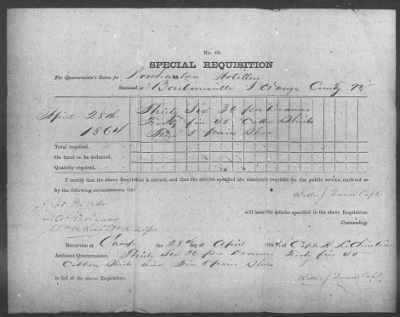 No. 40.
SPECIAL REQUISITION
For Quartermaster's Stores for Powhatan Artillery
Stationed at Orange County Va
April 28th Thirty Six 36 pair Drawers
1864 Forty five 45 Cotton Shirts
Five 5 pairs Shoes
Total required.
On hand to be deducted.
Quantity required.
I certify that the above Requisition is correct, and that the articles specified are absolutely requisite for the public service, rendered so
by the following circumstances, viz:
Willis J Dance Capt
will issue the articles specified in the above Requisition.
Commanding.
Received at Camp the 28th of April 1864 of Capt
Assistant Quartermaster, Thirty Six 36 pair Drawers Forty five 45
Cotton Shirts and Five 5 pairs Shoes
in full of the above Requisition.
Willis J Dance Capt